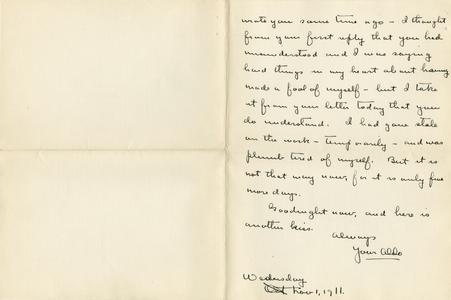 wrote you some time ago - I thought
from your first reply that you had
misunderstood and I was saying
hard things in my heart about having
made a fool of myself - but I take
it from your letter today that you
do understand. I had gone stale
on the work - temporarily - and was
plumb tired of myself. But it is
not that way now, for it is only five
more days.
Goodnight now, and here is
another kiss.
Always
Your Aldo
Wednesday
Nov 1, 1911.